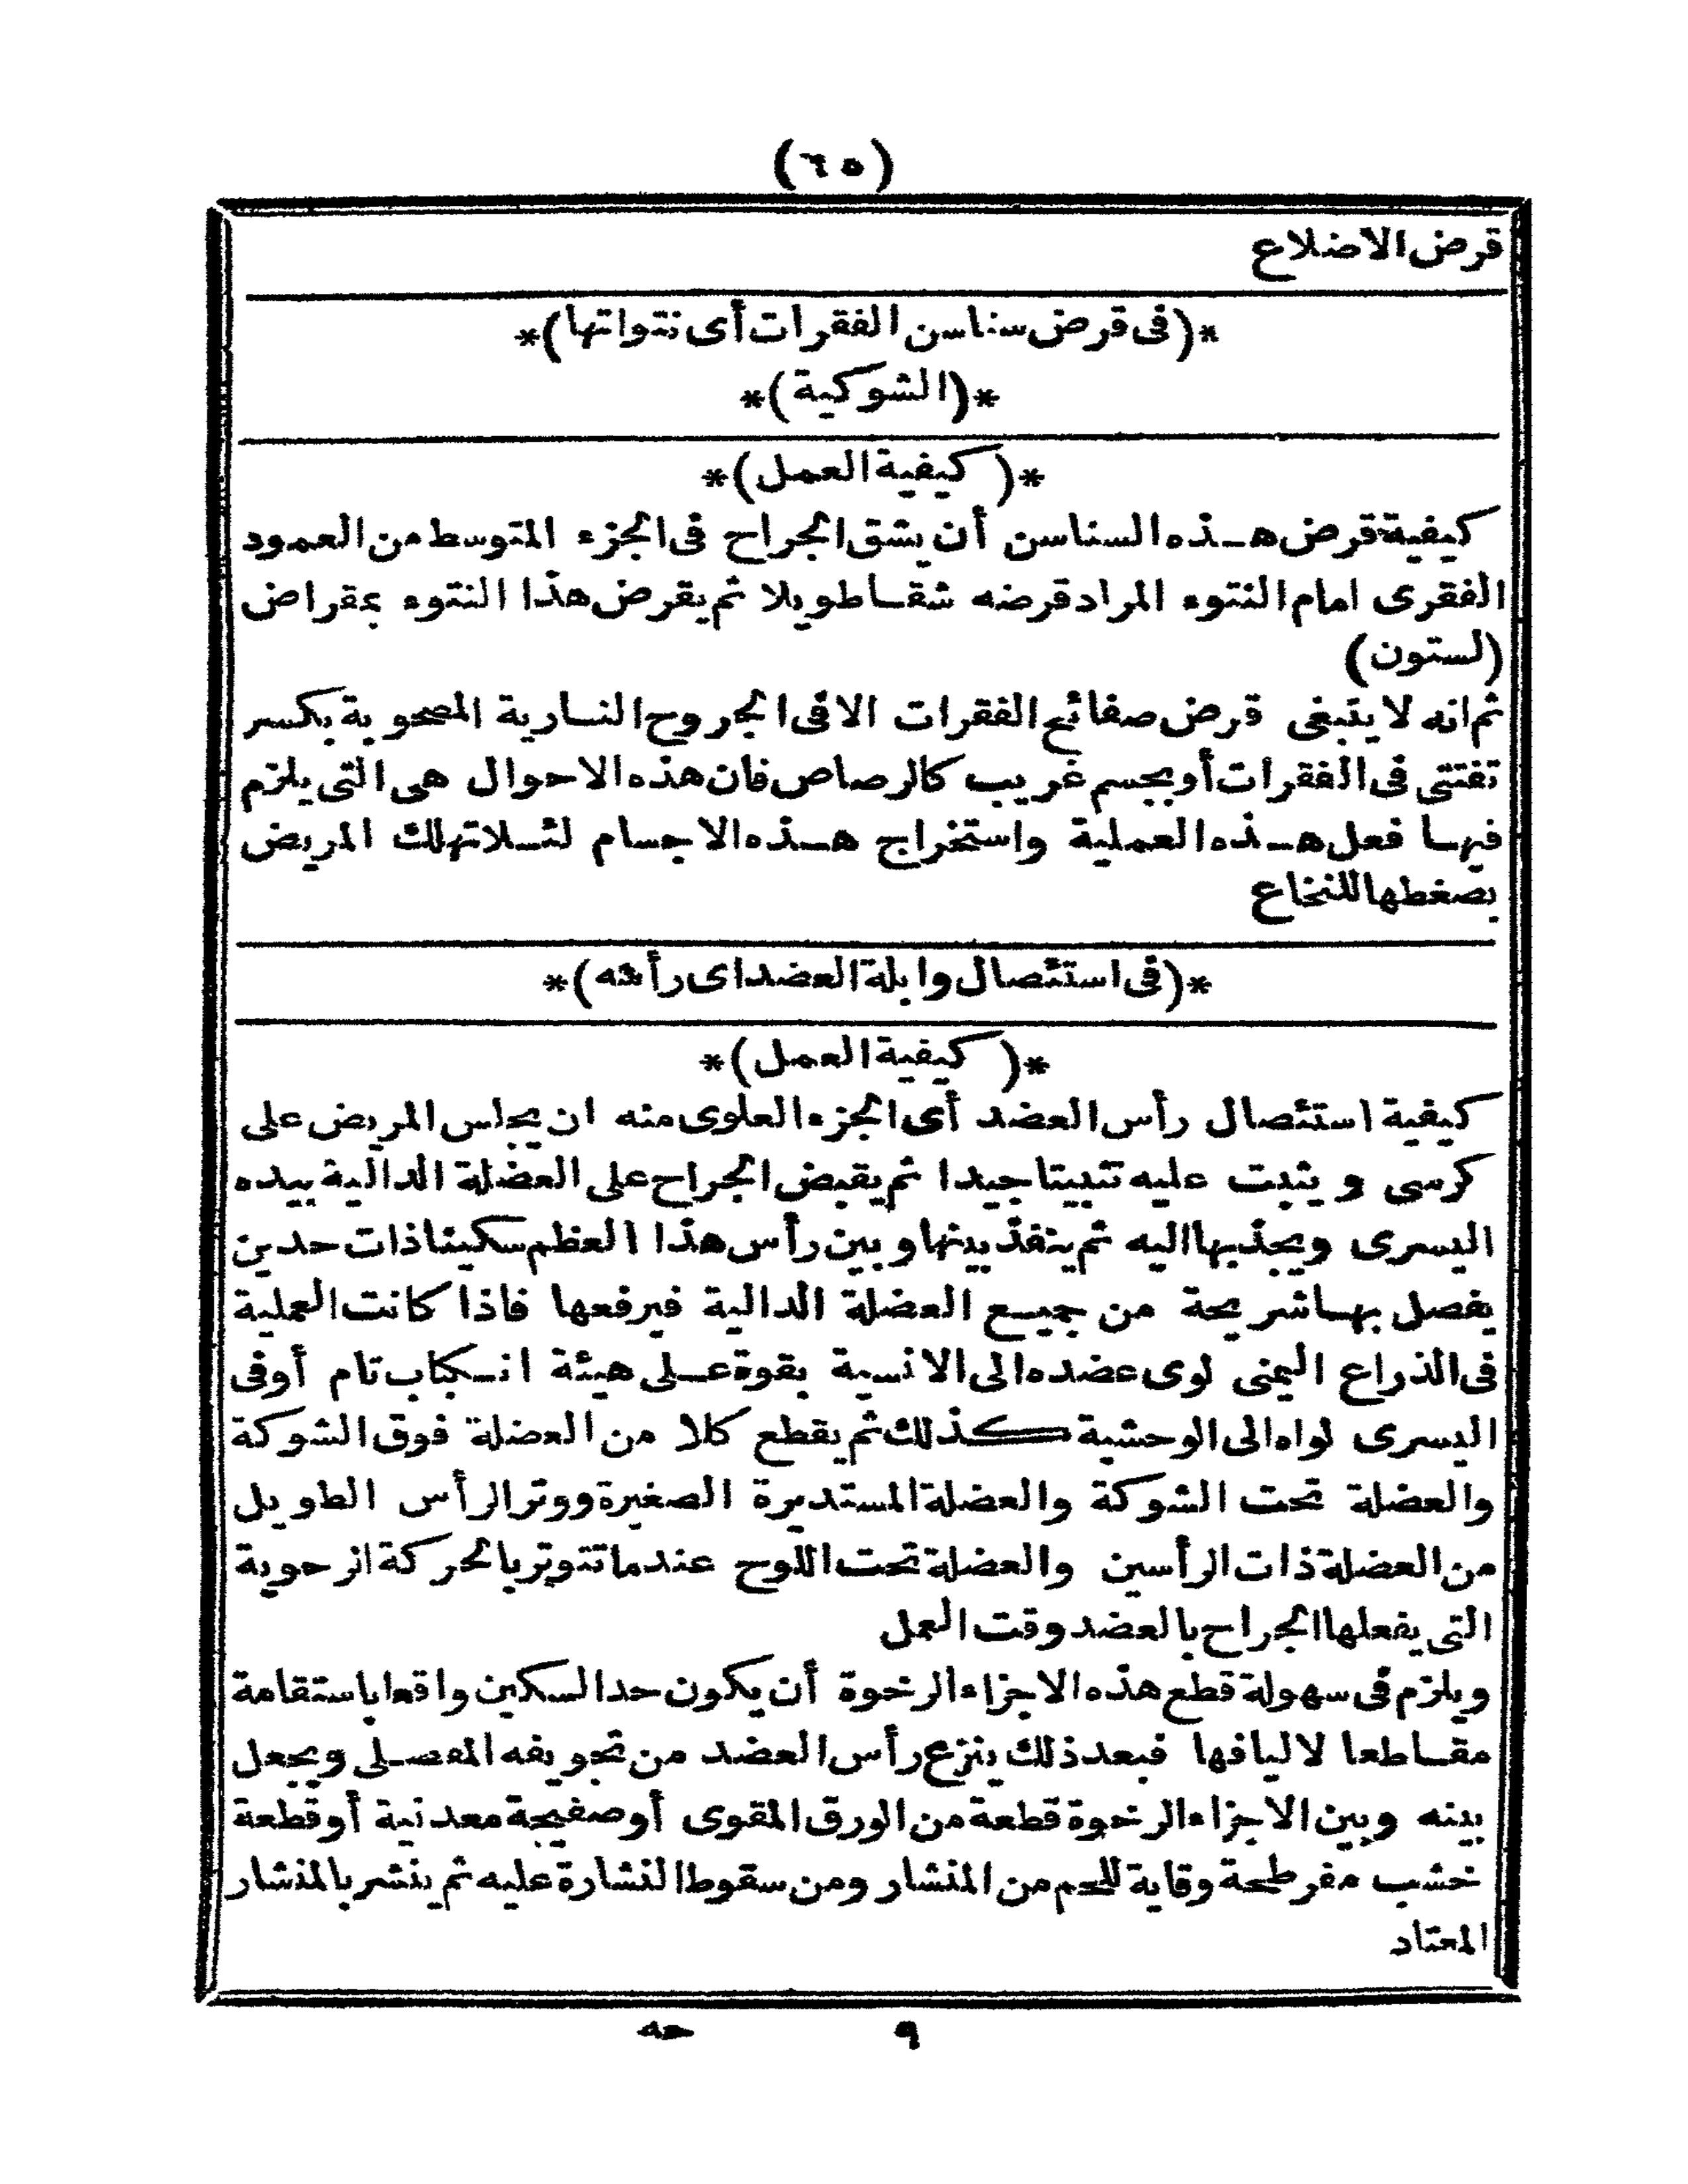 (٦٥)
قرض الاضلاع
*(فى قرض سناسن الفقرات أى نتواتها)*
*(الشوكية)*
*(كيفية العمل)*
كيفية قرض هـذه السناسن أن يشق الجراح فى الجزء المتوسط من العمود
الفقرى امام النتوء المراد قرضه شقـا طويلا ثم يقرض هذا النتوء بمقراض
(لستون)
ثم انه لا ينبغى قرض صفائح الفقرات الا فى الجروح النـارية المصحوبة بكسر
تفتتى فى الفقرات أو بجسم غريب كالرصاص فان هذه الاحوال هى التى يلزم
فيهـا فعل هـذه العملية واستخراج هـذه الاجسام لئـلا تهلك المريض
بضغطها للنخاع
*(فى استئصال وابلة العضد اى رأسه)*
*(كيفية العمل)*
كيفية استئصال رأس العضد أى الجزء العلوى منه ان يجلس المريض على
كرسى ويثبت عليه تثبيتا جيدا ثم يقبض الجراح على العضلة الدالية بيده
اليسرى ويجذبها اليه ثم ينفذ بينها وبين رأس هذا العظم سكينا ذات حدين
يفصل بهـا شريحة من جميـع العضلة الدالية فيرفعها فاذا كانت العملية
فى الذراع اليمنى لوى عضده الى الانسية بقوة عـلى هيئة انـكباب تام أو فى
اليسرى لواه الى الوحشية كذلك ثم يقطع كلا من العضلة فوق الشوكة
والعضلة تحت الشوكة والعضلة المستديرة الصغيرة ووتر الرأس الطويل
من العضلة ذات الرأسين والعضلة تحت اللوح عندما تتوتر بالحركة الرحوية
التى يفعلها الجراح بالعضد وقت العمل
ويلزم فى سهولة قطع هذه الاجزاء الرخوة أن يكون حد السكين واقعا باستقامة
مقـاطعا لاليافها فبعد ذلك ينزع رأس العضد من تجويفه المفصـلى ويجعل
بينه وبين الاجزاء الرخوة قطعة من الورق المقوى أو صفيحة معدنية أو قطعة
خشب مفرطحة وقاية للحم من المنشار ومن سقوط النشارة عليه ثم ينشر بالمنشار
المعتاد
٩ حه